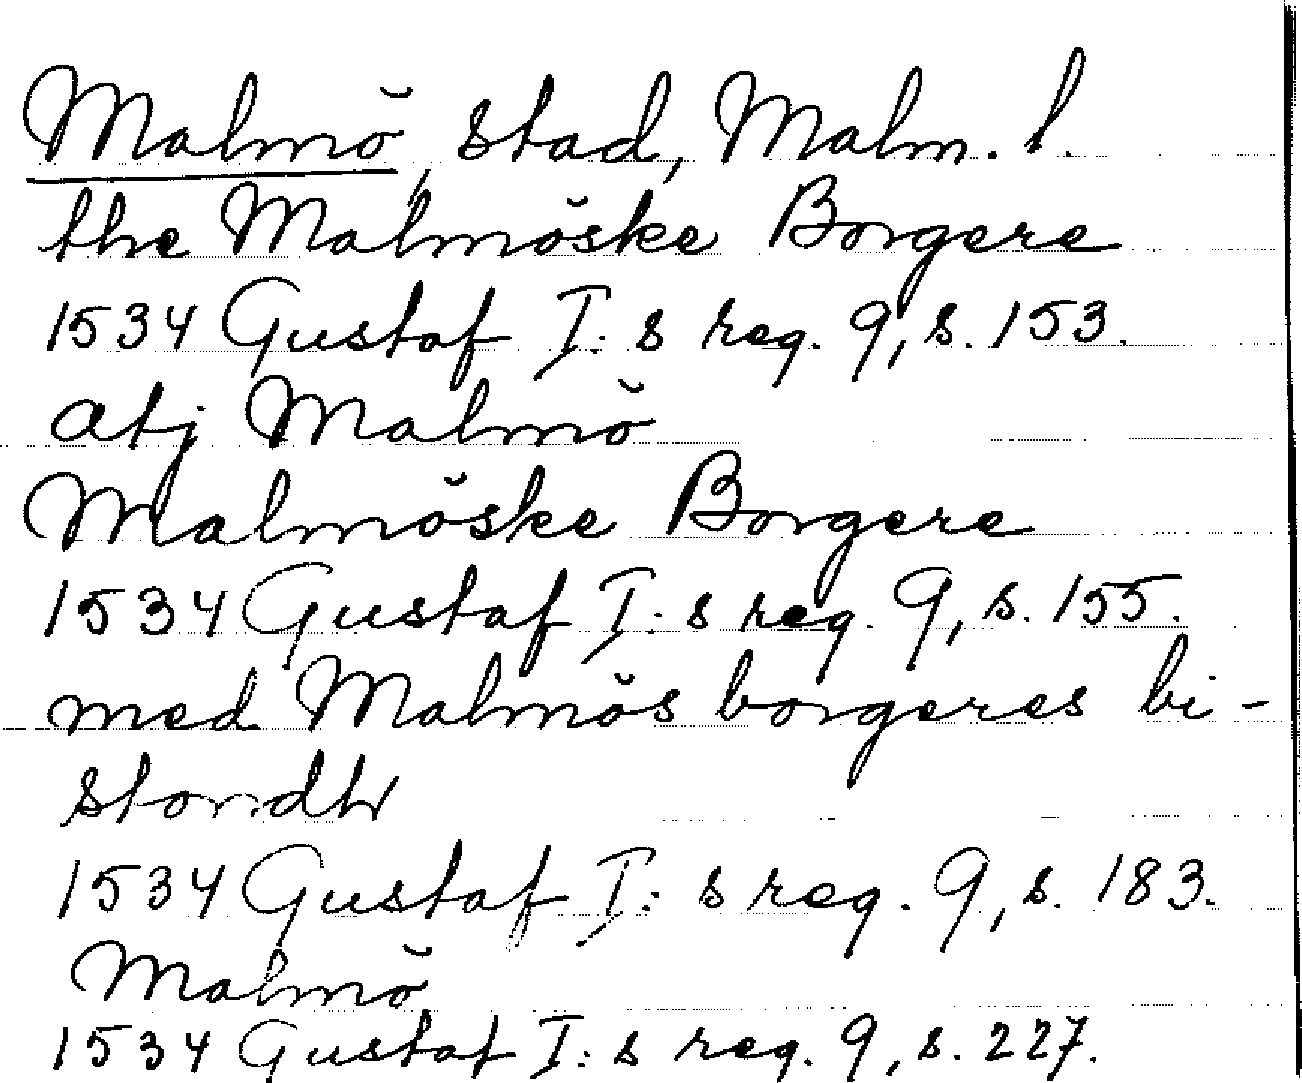 Malmö, stad, Malm. l.
the Malmöske Borgere
1534 Gustaf I: s reg. 9, s. 153.
atj Malmö
Malmöske Borgere
1534 Gustaf I: s reg. 9, s. 155.
med Malmös borgeres bi-
stondh
1534 Gustaf I: s reg. 9, s. 183.
Malmö
1534 Gustaf I: s reg. 9, s. 227.